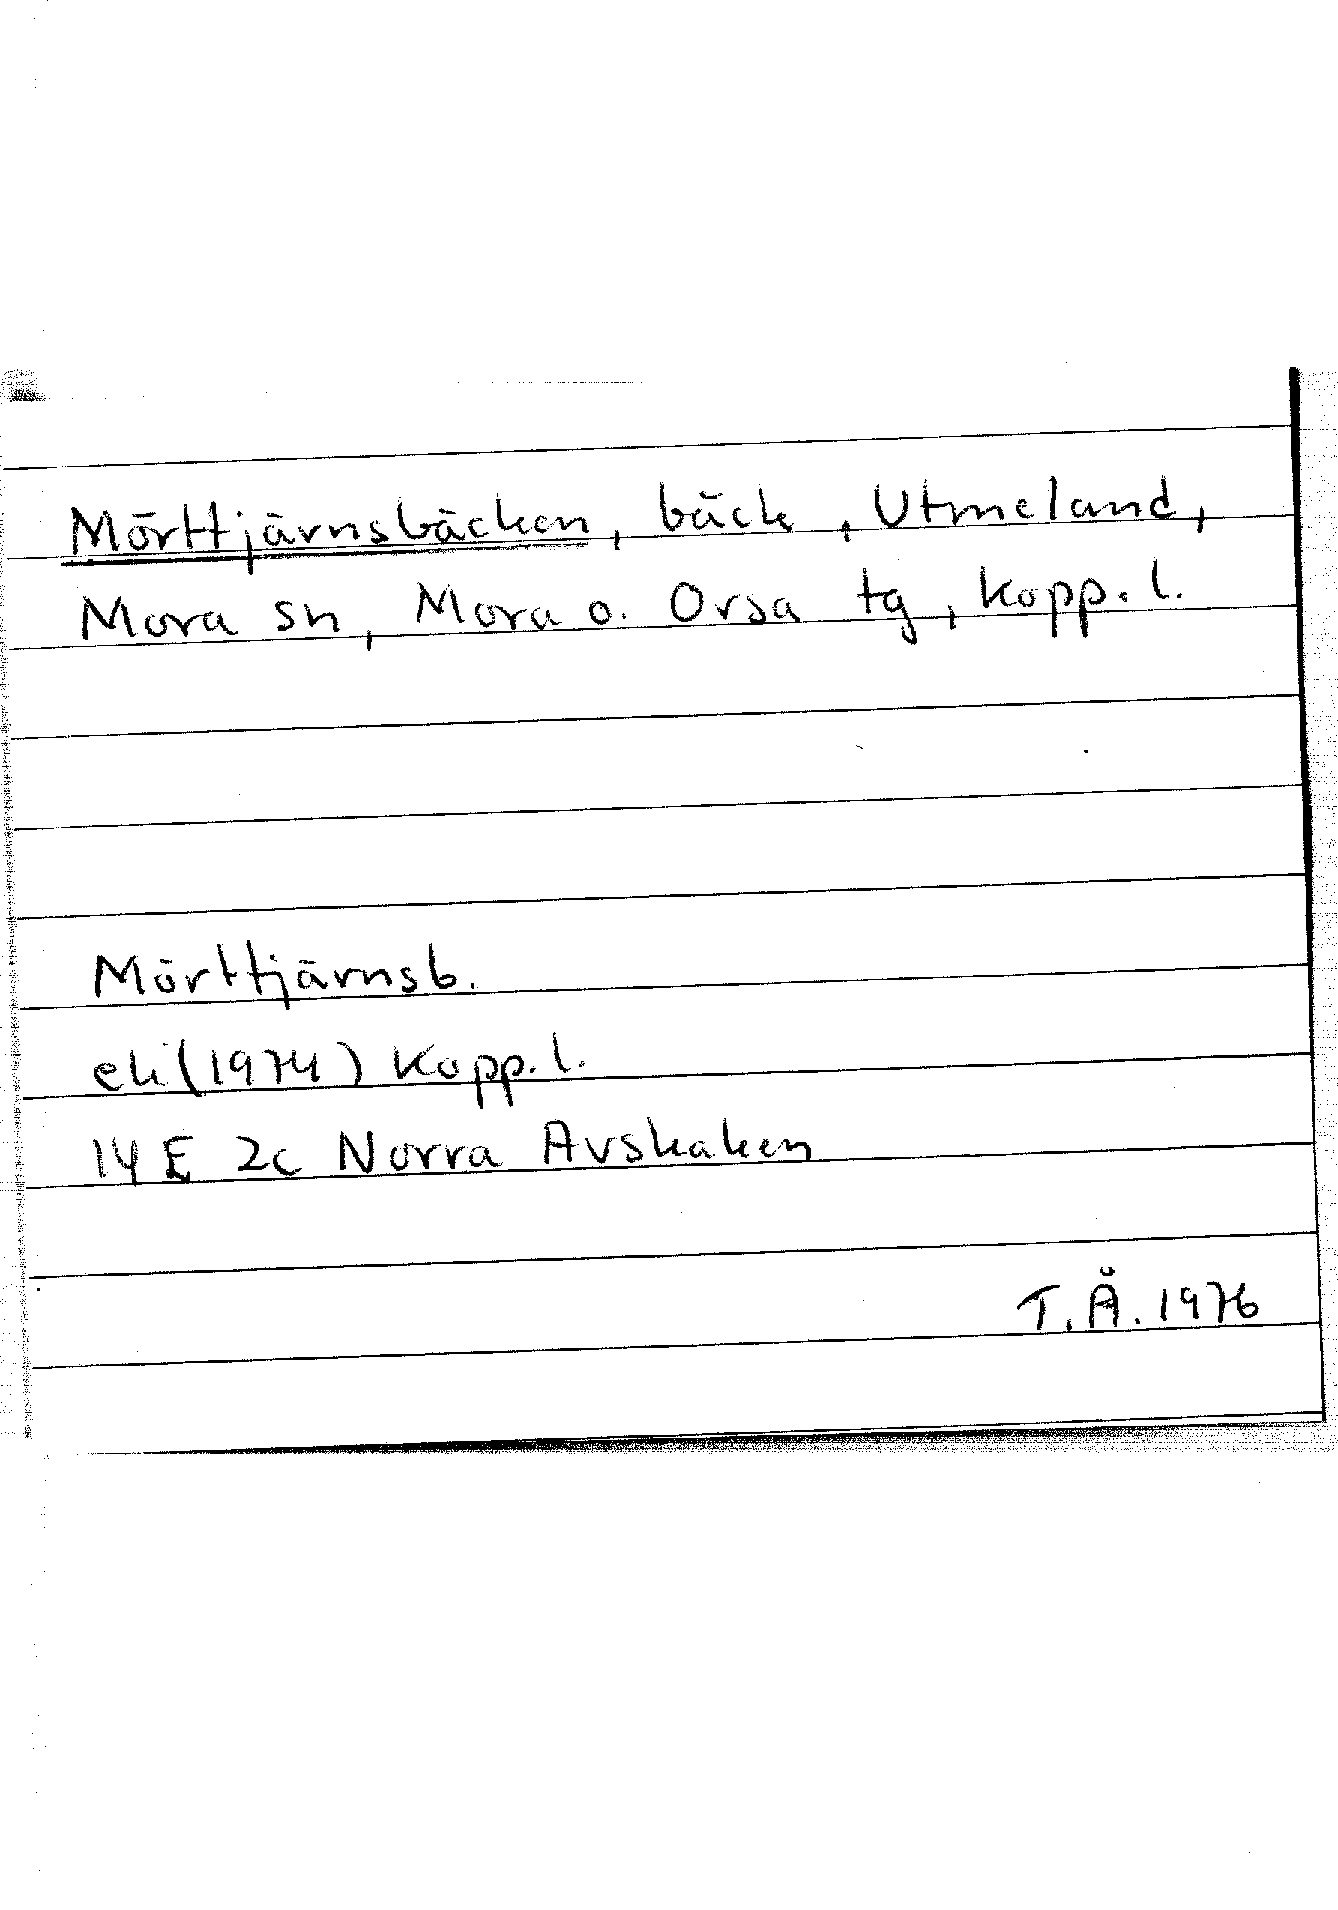 Mörttjärnsbäcken, bäck, Utmeland,
Mora sn, Mora o. Orsa tg, Kopp. l.
Mörttjärnsb.
ek (1974) Kopp. l.
14 E 2c Norra Avskaken
T.Å. 1976